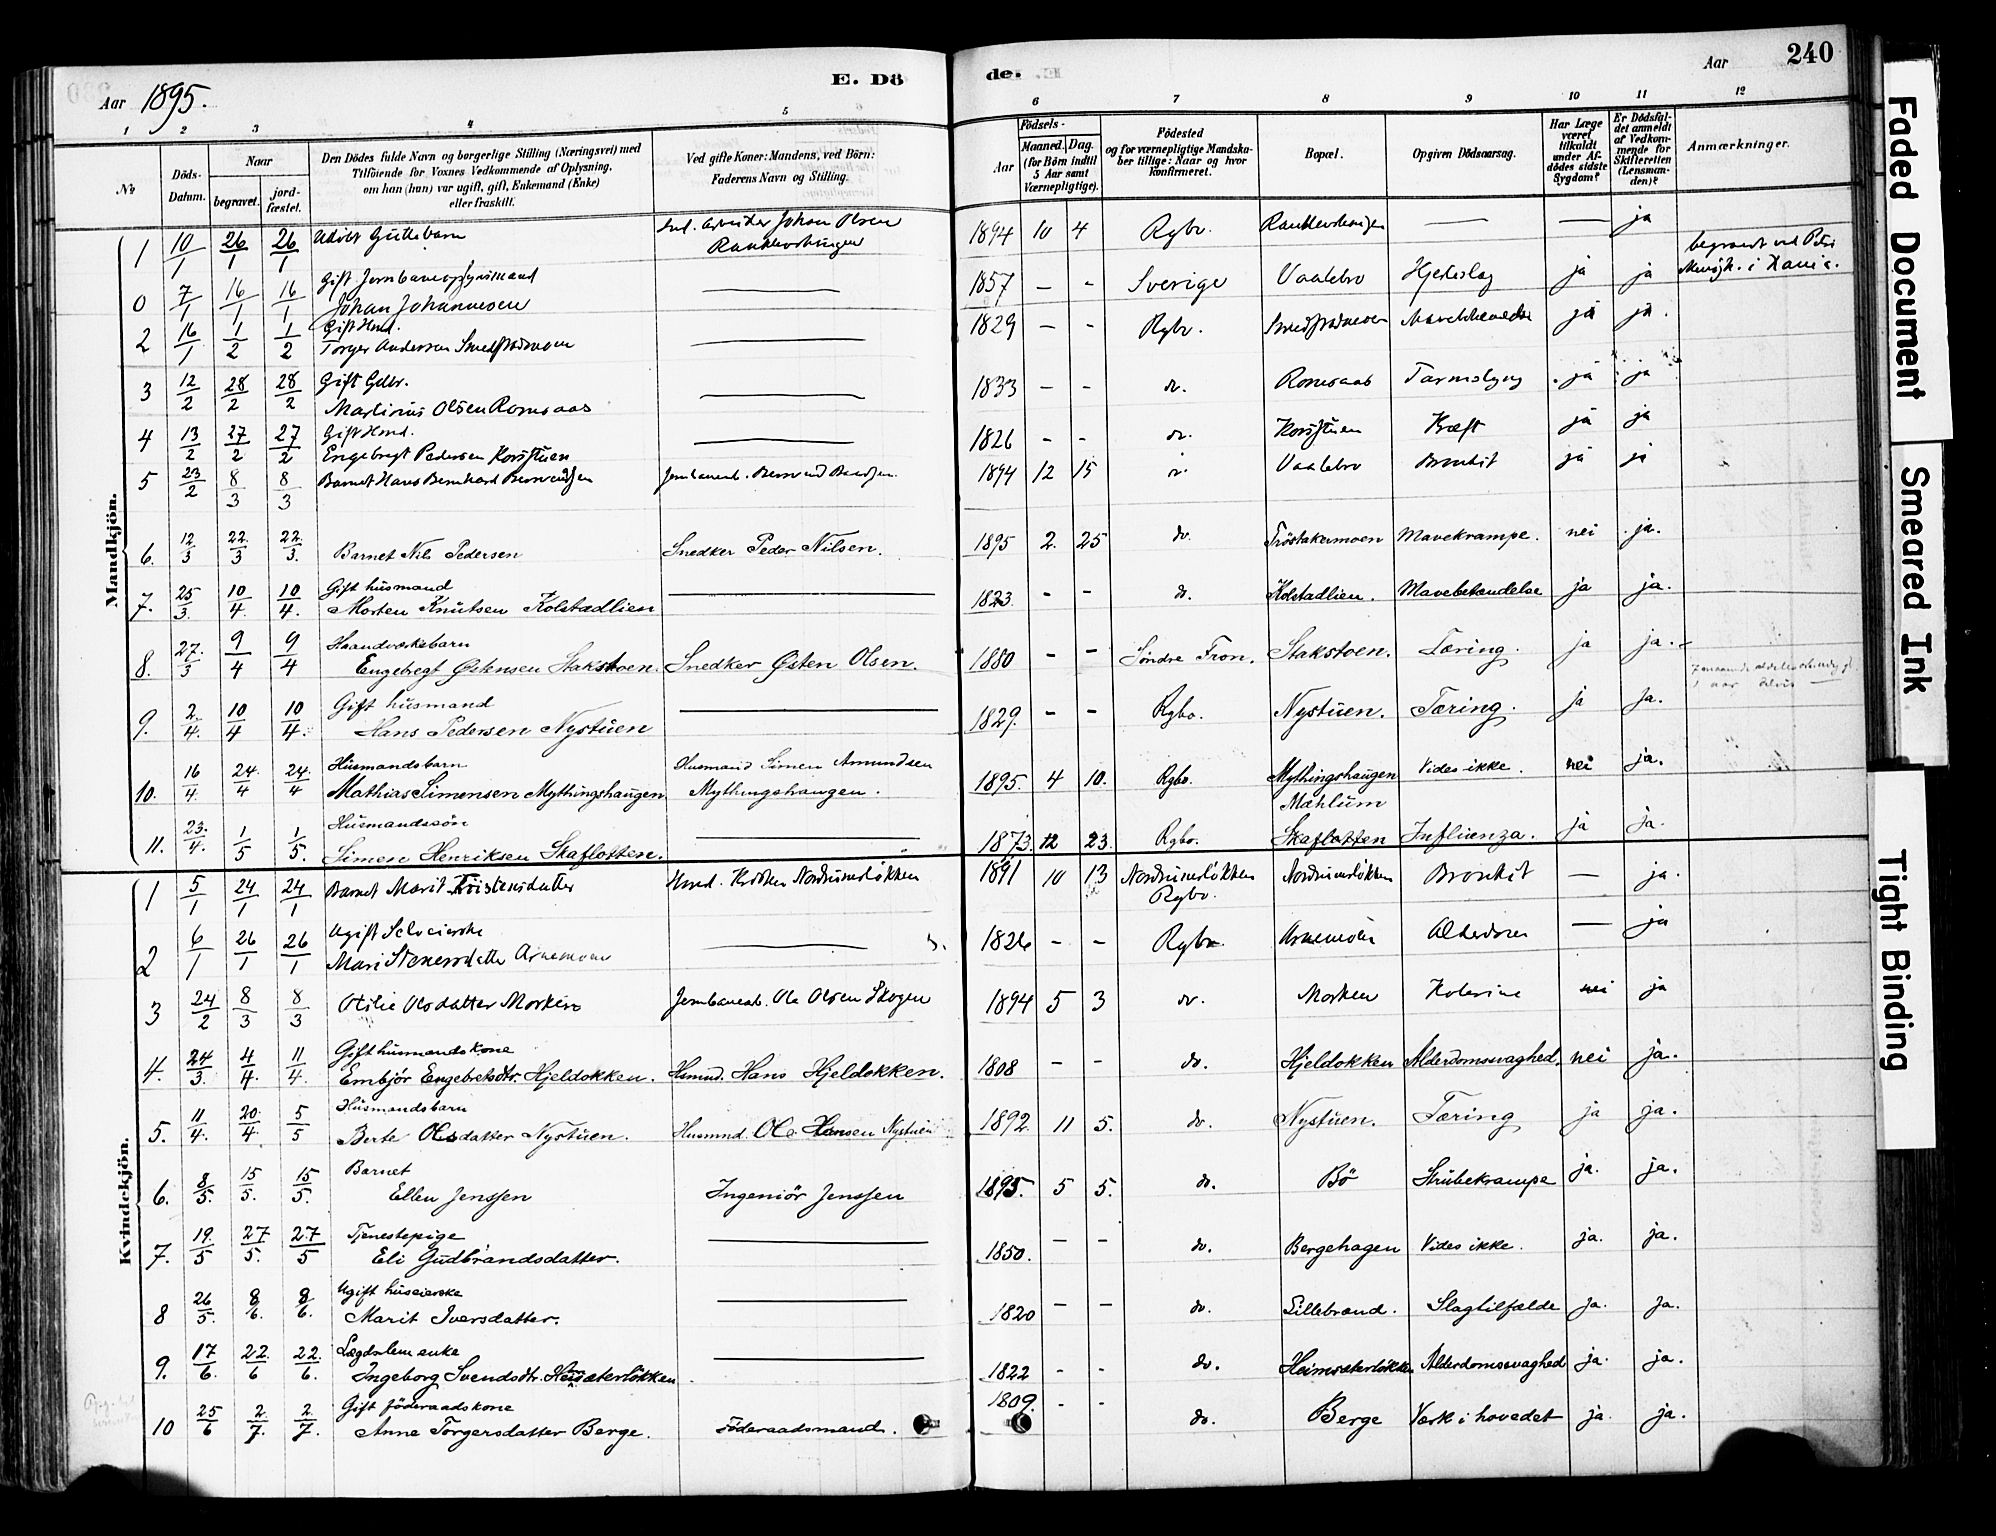 240
Aar 1895.
E. Dö
de.
Aar
1 2 3 4 5 6 7 8 9 10 11 12
No
Döds-Datum.
Naar
begravet.
jord-fæstet.
Den Dödes fulde Navn og borgerlige Stilling (Næringsvei) med
Tilföiende for Voxnes Vedkommende af Oplysning,
om han (hun) var ugift, gift, Enkemand (Enke)
eller fraskilt.
Ved gifte Koner: Mandens, ved Börn:
Faderens Navn og Stilling.
Födsels-
Aar
Maaned. Dag.
(for Börn indtil
5 Aar samt
Værnepligtige).
Födested
og for værnepligtige Mandska-
ber tillige: Naar og hvor
konfirmeret.
Bopæl.
Opgiven Dödsaarsag.
Har Læge
været
tilkaldt
under Af-
dödes sidste
Sygdom?
Er Dödsfal-
det anmeldt
af Vedkom-
mende for
Skifteretten
(Lensman-
den)?
Anmærkninger.
Mandkjön.
1 10/1 26/1 26/1 Udöbt Guttebarn Arbeider Johan Olsen 1894 10 4 Rgbo. — — ja
0 7/1 16/1 16/1 Gift Jernbaneopsynsmand
Johan Johannesen — 1857 - - Sverige Vaalebro Hjerteslag ja ja begravet ved
2 16/1 1/2 1/2 Gift Hmd.
Torger Andersen Smedstadmoen — 1829 - - Rgbo. Smedstadmoen ja ja.
3 12/2 28/2 28/2 Gift Gdbr.
Martinus Olsen Romsaas — 1833 - - do. Romsaas Tarmslyng ja ja
4 13/2 27/2 27/2 Gift Hmd.
Engebregt Pedersen Korsstuen — 1826 - - do. Korsstuen Kræft ja ja
5 23/2 8/3 8/3 Barnet Hans Bernhard 1894 12 15 Vaalebro Bronkit ja ja
6. 12/3 22/3 22/3. Barnet Nils Pedersen Snedker Peder Nilsen. 1895 2. 25 do. Tröstakermoen Mavekrampe. nei ja.
7. 25/3. 10/4. 10/4. Gift husmand
Morten Knutsen Kolstadlien — 1823 - - do. Kolstadlien. Mavebetændelse ja ja.
8. 27/3 9/4 9/4 Haandværkebarn
Engebregt Östensen Stakstoen. Snedker Östen Olsen. 1880 - - Söndre Fron. Stakstoen. Tæring. ja ja.
9. 2/4. 10/4 10/4. Gift husmand
Hans Pedersen Nystuen — 1829. - - Rgbo. Nystuen. Tæring. ja ja.
10. 16/4. 24/4 24/4. Husmandsbarn
Mathias Simensen Mythingshaugen Husmand Simen Amundsen
Mythingshaugen. 1895. 4 10. Rgbo. Mythingshaugen
Mæhlum Vides ikke. nei ja.
11. 23/4. 1/5 1/5. Husmandssön
Simen Henriksen Skaflotten. — 1873. 12 23. Rgbo. Skaflotten Influenza. ja ja.
Kvindekjön.
1 5/1 24/1 24/1 Barnet Marit Kristensdatter Hmd. Kristen Nordrumsløkken 1891 10 13 Nordrumsløkken
Rgbo. Nordrumsløkken Bronkit — ja.
2 6/1 26/1 26/1 Ugift Selveierske
Mari Steneersdatter Arnemoen — 1826 - - Rgbo. Arnemoen — ja
3 24/2 8/3 8/3 Otilie Olsdatter Morken Jernbanearb. Ole Olsen Skogen 1894 5 3 do. Morken Kolerine nei ja
4. 24/3. 4/4. 11/4. Gift husmandskone
Embjör Engebretsdtr. Hjeldokken. Hsmd. Hans Hjeldokken. 1808 - - do. Hjeldokken Alderdomssvaghed. nei ja.
5. 11/4. 20/4. 5/5 Husmandsbarn
Berte Olsdatter Nystuen. Husmnd. Ole Hansen Nystuen 1892 11 5. do. Nystuen. Tæring ja ja.
6. 8/5. 15/5. 15/5. Barnet
Ellen Jenssen Ingeniör Jenssen 1895. 5 5. do. Bö Strubekrampe ja. ja.
7. 19/5 27/5. 27/5 Tjenestepige
Eli Gudbrandsdatter. — 1850. - - do. Bergehagen Vides ikke. ja. ja.
8 26/5. 8/6. 8/6. Ugift huseierske
Marit Iversdatter. — 1820 - - do. Lillebrænd. Slagtilfælde ja. ja.
9. 17/6. 22/6 22/6. Lægdslem enke
Ingeborg Svendsdtr. Heimsæterløkken — 1822 - - do. Heimsæterløkken Alderdomssvaghed ja. ja.
10 25/6 2/7. 2/7. Gift föderaadskone
Anne Torgersdatter Berge. Föderaadsmand. 1809. - - do. Berge Værk i hovedet ja. ja.
Faded Document
Smeared Ink
Tight Binding